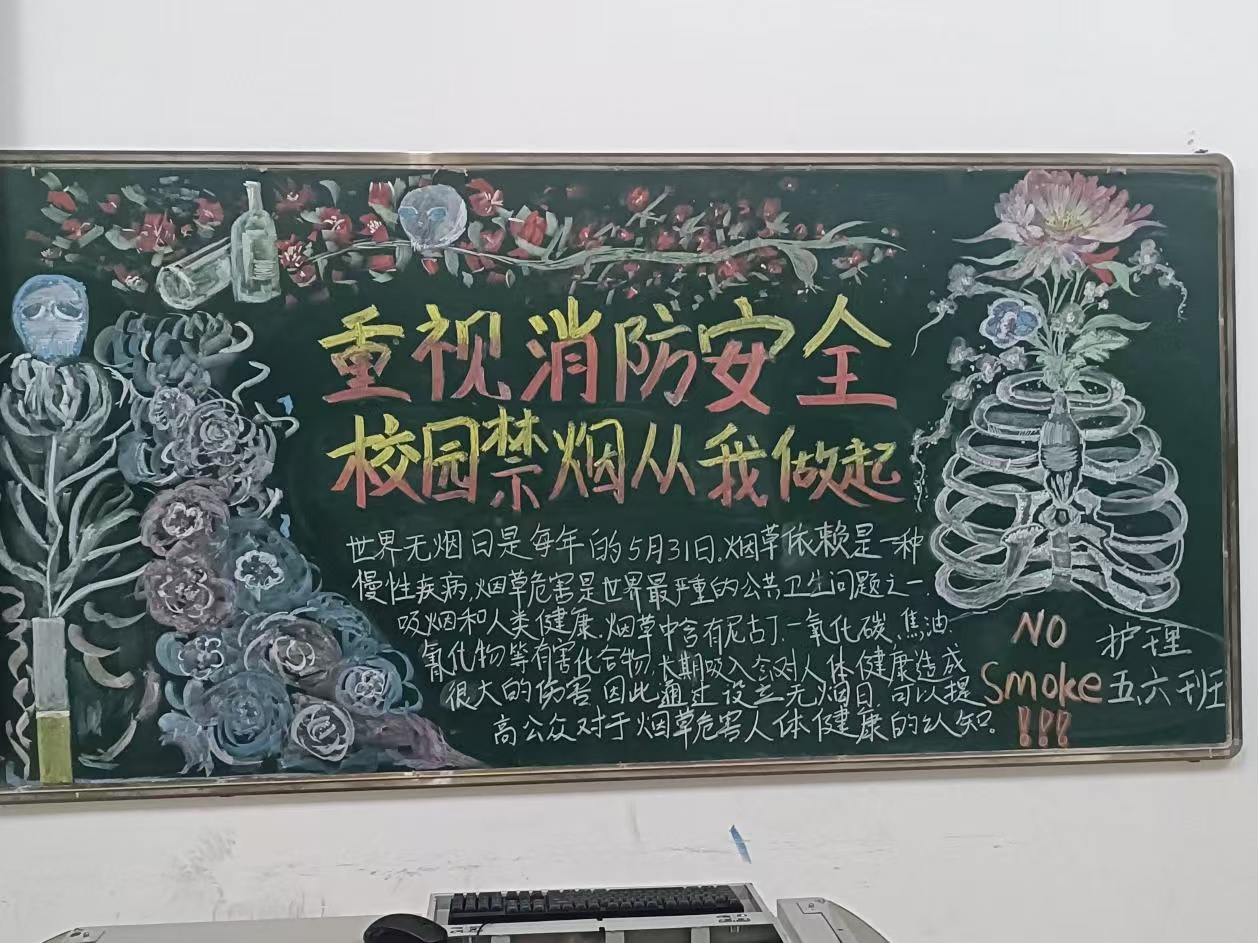 重视消防安全
校园禁烟从我做起
世界无烟日是每年的5月31日.烟草依赖是一种
慢性疾病,烟草危害是世界最严重的公共卫生问题之一.
吸烟和人类健康.烟草中含有尼古丁.一氧化碳.焦油.
氰化物等有害化合物,长期吸入会对人体健康造成
很大的伤害.因此通过设立无烟日.可以提
高公众对于烟草危害人体健康的认知。
NO
Smoke
!!!
护理
五.六班